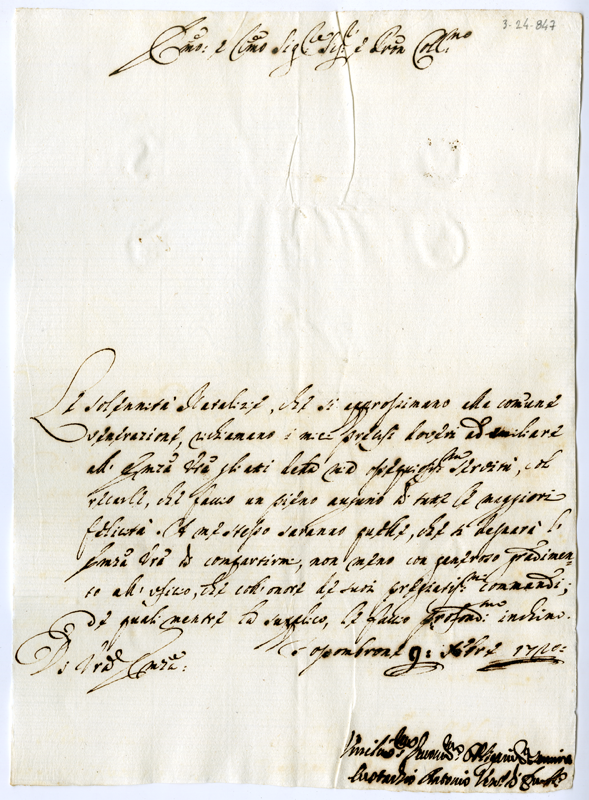 3-24-847
Emo: e Rmo Sig.re Sig.r e Pron Coll.mo
Le solennità Natalizie, che si approssimano alla comune
venerazione, richiamano i miei precisi doveri ad umiliare
all' Emza Vra gli atti della mia ossequiosis.ma Servitù, col
recarle, che faccio un pieno augurio di tutte le maggiori
felicità. A me stesso saranno quelle, che si degnarà l'
Emza Vra di compartirmi, non meno con generoso gradimen-
to all' ufficio, che coll' onore de suoi pregiatis.mi commandi;
de quali mentre la supplico, le faccio profondis.mo inchino.
Di Vra Emza:
9: Xbre 1720:
Umilis.mo Devotis.mo Obligatis.mo
Antonio